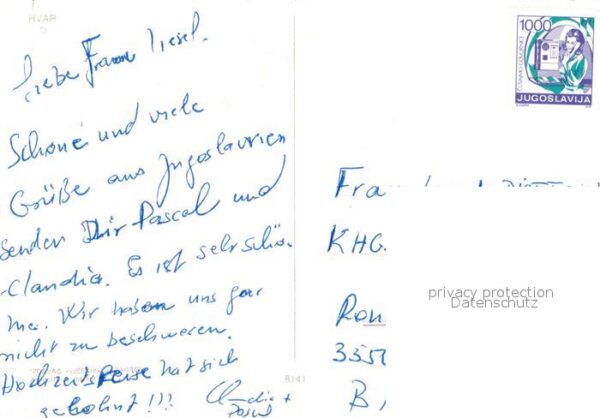 HVAR
Liebe Frau Liesel.
Schöne und viele
Grüße aus Jugoslawien
senden Dir Pascal und
Claudia. Es ist sehr schö-
ne. Wir haben uns gar
nicht zu beschweren.
Hochzeitsreise hat sich
gelohnt!!! Claudia +
Pascal
8141
1000
JUGOSLAVIJA
KHG
privacy protection
Datenschutz